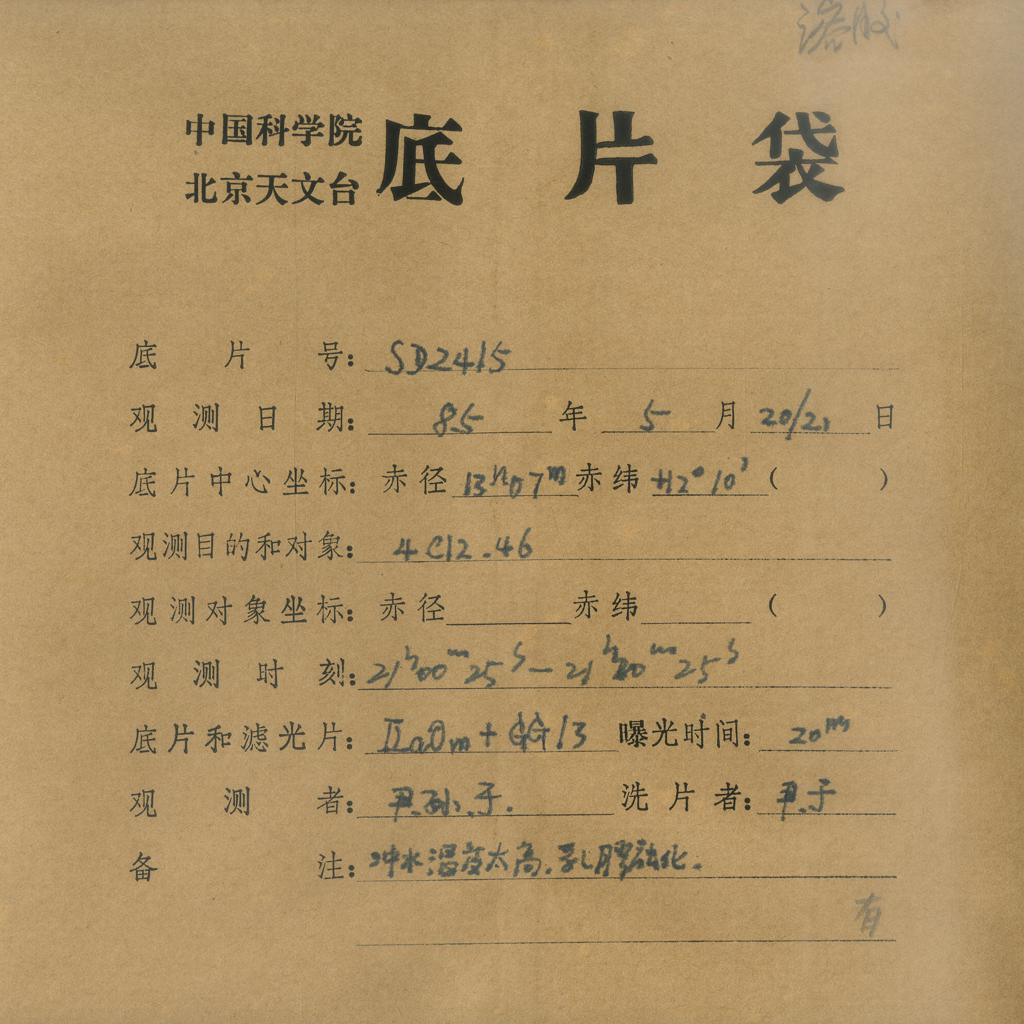 溶胶
中国科学院
北京天文台
底片袋
底片号: SD2415
观测日期: 85年 5月 20/21日
底片中心坐标: 赤径 13h07m 赤纬 +12°10' ( )
观测目的和对象: 4C12.46
观测对象坐标: 赤径 赤纬 ( )
观测时刻: 21h00m25s—21h20m25s
底片和滤光片: IIaOm+GG13 曝光时间: 20m
观测者: 尹.孙.于. 洗片者: 尹.于
备注: 冲水温度太高.乳胶融化.
有